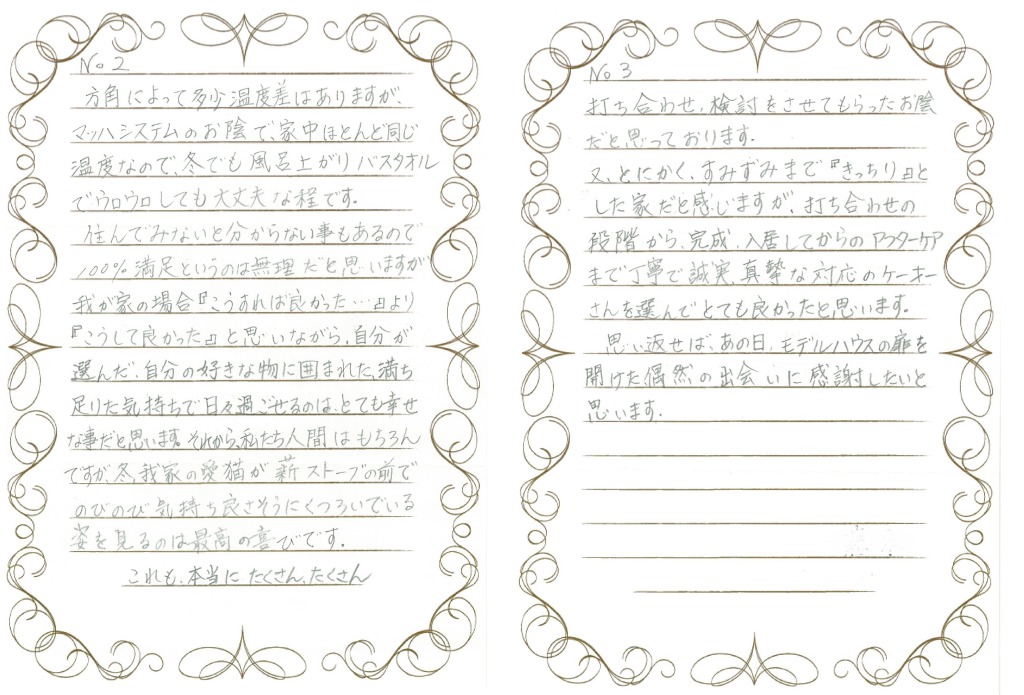 No2
方角によって多少温度差はありますが、
マッハシステムのお陰で、家中ほとんど同じ
温度なので、冬でも風呂上がりバスタオル
でウロウロしても大丈夫な程です。
住んでみないと分からない事もあるので
100%満足というのは無理だと思いますが
我が家の場合『こうすれば良かった…』より
『こうして良かった』と思いながら、自分が
選んだ、自分の好きな物に囲まれた、満ち
足りた気持ちで日々過ごせるのは、とても幸せ
な事だと思います。それから、私たち人間はもちろん
ですが、冬、我家の愛猫が薪ストーブの前で
のびのび気持ち良さそうにくつろいでいる
姿を見るのは最高の喜びです。
これも、本当にたくさん、たくさん
No3
打ち合わせ、検討をさせてもらったお陰
だと思っております。
又、とにかく、すみずみまで『きっちり』と
した家だと感じますが、打ち合わせの
段階から、完成、入居してからのアフターケア
まで丁寧で誠実、真摯な対応のケーキー
さんを選んでとても良かったと思います。
思い返せば、あの日、モデルハウスの扉を
開けた偶然の出会いに感謝したいと
思います。